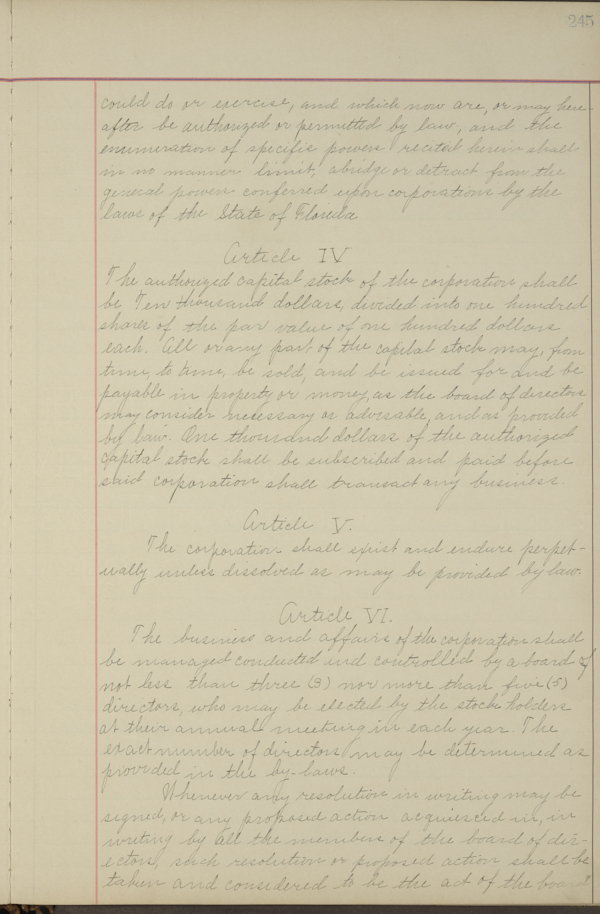 245
could do or exercise, and which now are, or may here-
after be authorized or permitted by law, and the
enumeration of specific powers recited herein shall
in no manner limit, abridge or detract from the
general powers conferred upon corporations by the
laws of the State of Florida
Article IV
The authorized capital stock of the corporation shall
be Ten thousand dollars, divided into one hundred
shares of the par value of one hundred dollars
each. All or any part of the capital stock may, from
time, to time, be sold, and be issued for and be
payable in property or money, as the board of directors
may consider necessary or advisable, and as provided
by law. One thousand dollars of the authorized
capital stock shall be subscribed and paid before
said corporation shall transact any business.
Article V.
The corporation shall exist and endure perpet-
ually unless dissolved as may be provided by law.
Article VI.
The business and affairs of the corporation shall
be managed conducted and controlled by a board of
not less than three (3) nor more than five (5)
directors, who may be elected by the stock holders
at their annual meeting in each year. The
exact number of directors may be determined as
provided in the by-laws.
Whenever any resolution in writing may be
signed, or any proposed action acquiesced in, in
writing by all the members of the board of dir-
ectors, such resolution or proposed action shall be
taken and considered to be the act of the board